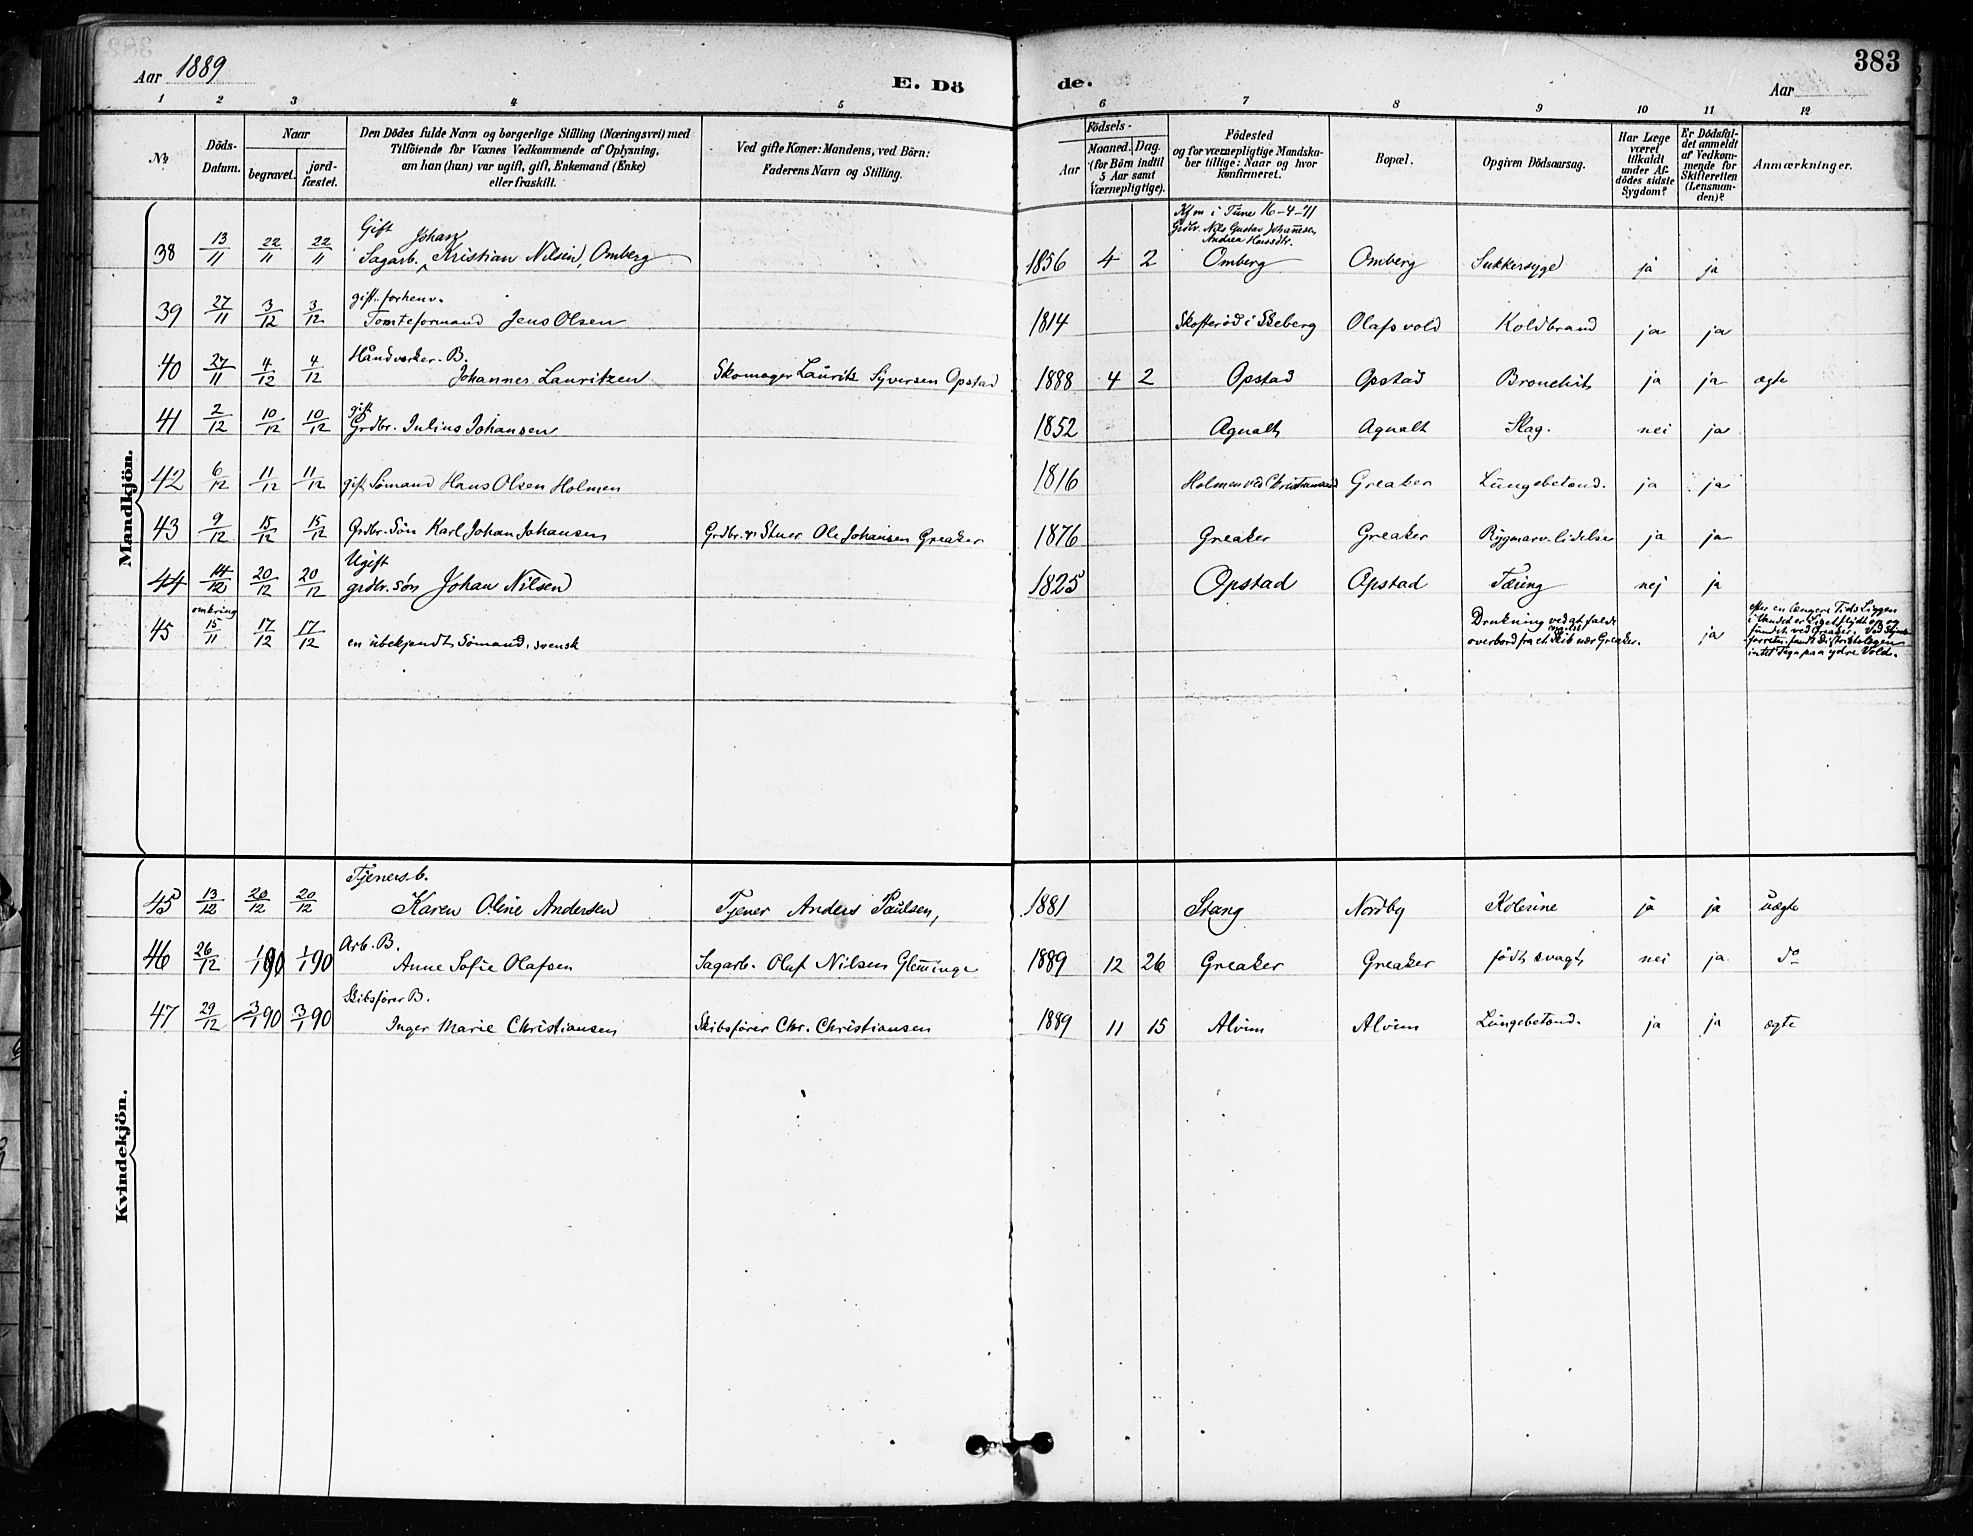 Aar 1889
E. Dö
de.
Aar
383
1 2 3 4 5 6 7 8 9 10 11 12
No
Döds-
Datum.
Naar
begravet.
jord-
fæstet.
Den Dödes fulde Navn og borgerlige Stilling (Næringsvei) med
Tilföiende for Voxnes Vedkommende af Oplysning,
om han (hun) var ugift, gift, Enkemand (Enke)
eller fraskilt.
Ved gifte Koner: Mandens, ved Börn:
Faderens Navn og Stilling.
Födsels-
Aar
Maaned. Dag.
(for Börn indtil
5 Aar samt
Værnepligtige).
Födested
og for værnepligtige Mandska-
ber tillige: Naar og hvor
konfirmeret.
Bopæl.
Opgiven Dödsaarsag.
Har Læge
været
tilkaldt
under Af-
dödes sidste
Sygdom?
Er Dödsfal-
det anmeldt
af Vedkom-
mende for
Skifteretten
(Lensman-
den)?
Anmærkninger.
Mandkjön.
Kfm i Tune 16-4-71
Grdbr. Nils Gustav Johannesen,
Gift Johan
38 13/11 22/11 22/11 Sagarb. Kristian Nilsen, Omberg 1856 4 2 Omberg Omberg Sukkersyge ja ja
gift. forhenv.
39 27/11 3/12 3/12 Tomteformand Jens Olsen 1814 i Skeberg Olafsvold Koldbrand ja ja
Håndverker. B.
40 27/11 4/12 4/12 Johannes Lauritzen Skomager Lauritz Syversen Opstad 1888 4 2 Opstad Opstad Bronchit ja ja ægte
gift
41 2/12 10/12 10/12 Grdbr. Julius Johansen 1852 Agnalt Agnalt Slag. nei ja
42 6/12 11/12 11/12 gift Sömand Hans Olsen Holmen 1816 Holmen ved Christiansand Greaker Lungebetænd. ja ja
43 9/12 15/12 15/12 Grdbr. Sön Karl Johan Johansen Grdbr. Ole Johansen Greaker 1876 Greaker Greaker Rygmarv. lidelse ja ja
Ugift
44 14/12 20/12 20/12 grdbr. sön Johan Nilsen 1825 Opstad Opstad Tæring nej ja
omkring
45 15/11 17/12 17/12 en ubekjendt Sömand, svensk
Drukning ved at falde
overbord fra et Skib nær Greaker. ja
efter en længere Tids Liggen
i Vandet er Liget flydt op og
fundet ved Greaker. Ved
fandt Distriktslægen
intet Tegn paa ydre Vold.
Kvindekjön.
Tjeners b.
45 13/12 20/12 20/12 Karen Oline Andersen Tjener Anders Paulsen, 1881 Stang Nordby Kolerine ja ja uægte
Arb. B.
46 26/12 1/1 90 1/1 90 Anne Sofie Olafsen Sagarb. Olaf Nilsen Glemminge 1889 12 26 Greaker Greaker födt svagt nei ja do
Skibsförer B.
47 29/12 3/1 90 3/1 90 Inger Marie Christiansen Skibsförer Chr. Christiansen 1889 11 15 Alvim Alvim Lungebetænd. ja ja ægte